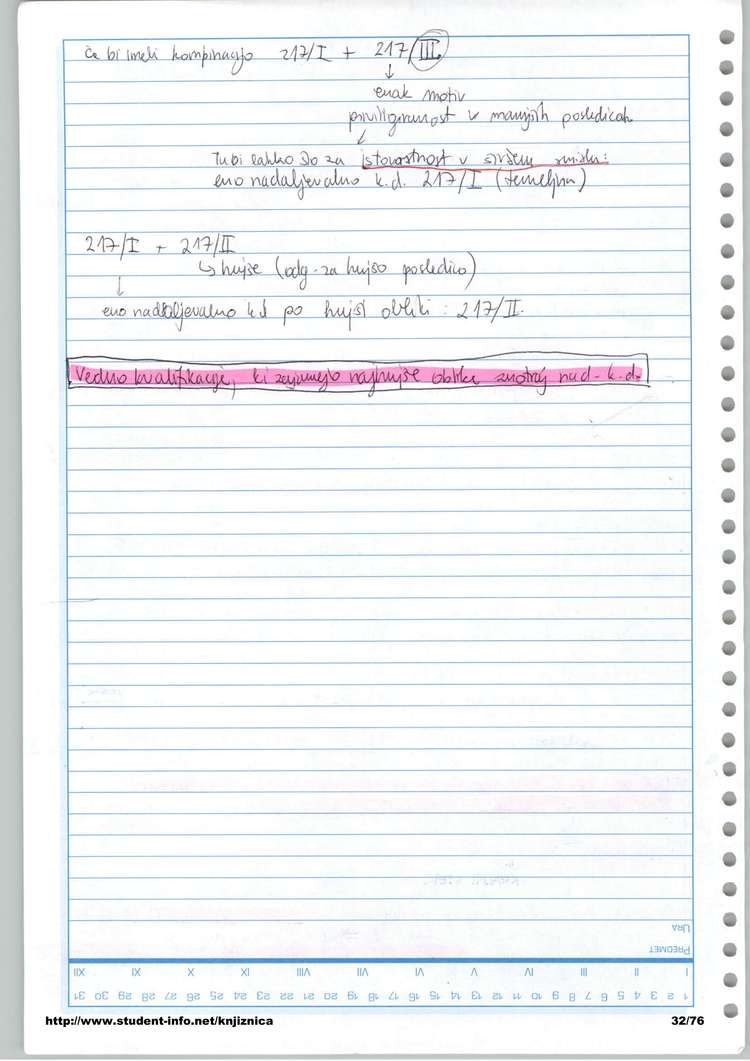 če bi imeli kombinacijo 217/I + 217/III
↓
enak motiv
priviligiranost v manjših posledicah
↓
Tu bi lahko šlo za istovrstnost v širšem smislu:
eno nadaljevalno k.d. 217/I (temeljna)
217/I + 217/II
↳ hujše (odg. za hujšo posledico)
↓
eno nadaljevalno k.d po hujši obliki : 217/II.
Vedno kvalifikacije, ki zajamejo najhujše oblike znotraj nad. k.d.
URA
PREDMET
I II III IV V VI VII VIII IX X XI XII
1 2 3 4 5 6 7 8 9 10 11 12 13 14 15 16 17 18 19 20 21 22 23 24 25 26 27 28 29 30 31
http://www.student-info.net/knjiznica 32/76